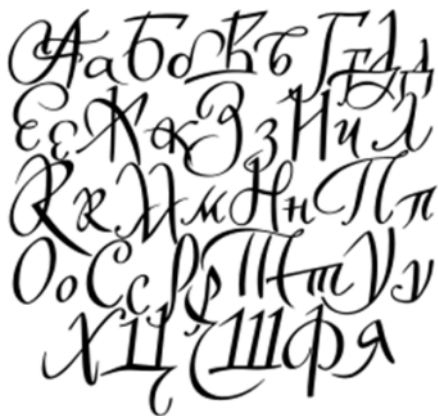 АаБбВвГгДд
ЕеЖжЗзИиЛ
КкМмНнПп
ОоСсРрТтУу
ХЦЧШФя